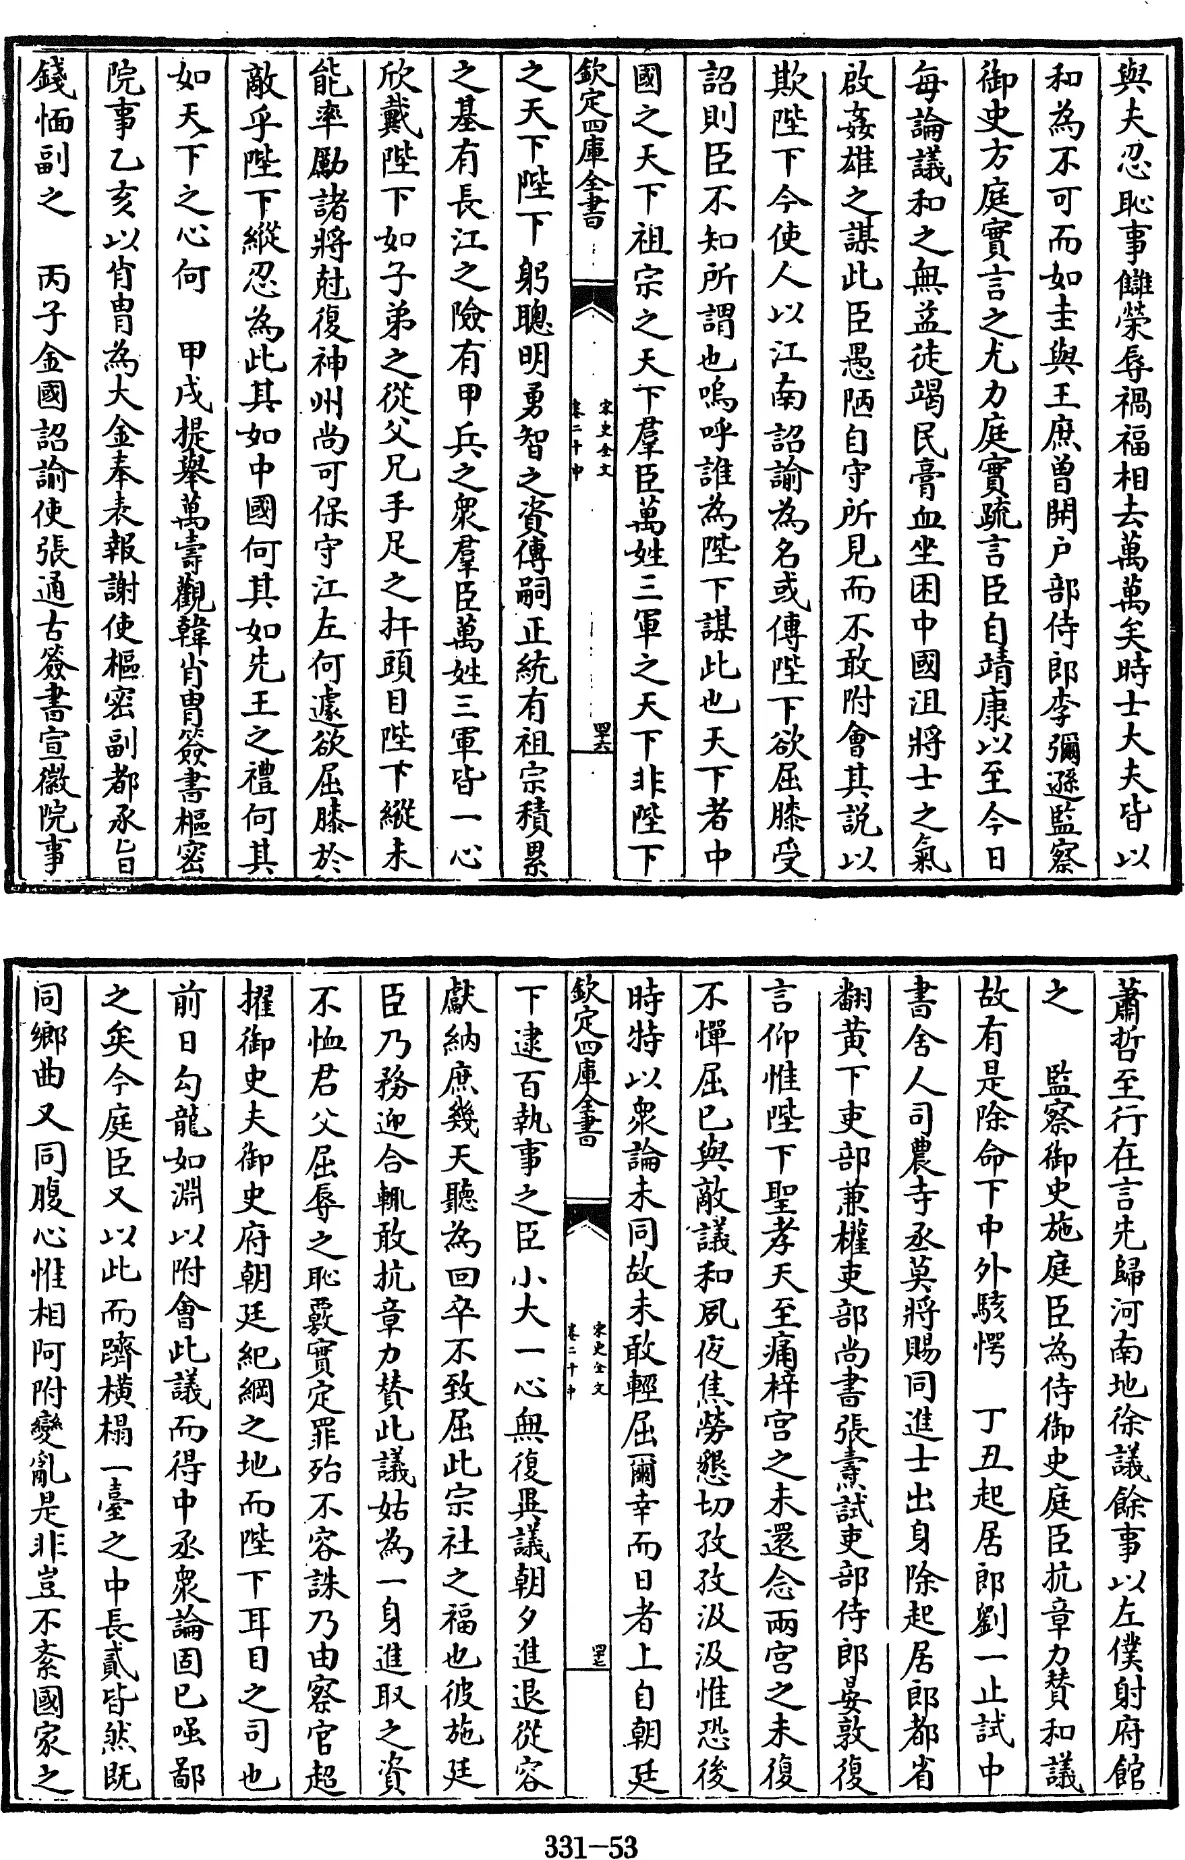 與夫忍恥事讎榮辱禍福相去萬萬矣時士大夫皆以
和為不可而如圭與王庶曾開户部侍郎李彌遜監察
御史方庭實言之尤力庭實疏言臣自靖康以至今日
每論議和之無益徒竭民膏血坐困中國沮將士之氣
啟姦雄之謀此臣愚陋自守所見而不敢附會其説以
欺陛下今使人以江南詔諭為名或傳陛下欲屈膝受
詔則臣不知所謂也嗚呼誰為陛下謀此也天下者中
國之天下祖宗之天下羣臣萬姓三軍之天下非陛下
欽定四庫全書
宋史全文
卷二十中
四六
之天下陛下躬聰明勇智之資傳嗣正統有祖宗積累
之基有長江之險有甲兵之衆羣臣萬姓三軍皆一心
欣戴陛下如子弟之從父兄手足之扞頭目陛下縱未
能率勵諸將尅復神州尚可保守江左何遽欲屈膝於
敵乎陛下縱忍為此其如中國何其如先王之禮何其
如天下之心何　甲戌提舉萬壽觀韓肖胄簽書樞密
院事乙亥以肖胄為大金奉表報謝使樞密副都承旨
錢愐副之　丙子金國詔諭使張通古簽書宣徽院事
蕭哲至行在言先歸河南地徐議餘事以左僕射府館
之　監察御史施庭臣為侍御史庭臣抗章力贊和議
故有是除命下中外駭愕　丁丑起居郎劉一止試中
書舍人司農寺丞莫將賜同進士出身除起居郎都省
翻黄下吏部兼權吏部尚書張燾試吏部侍郎晏敦復
言仰惟陛下聖孝天至痛梓宫之未還念兩宫之未復
不憚屈已與敵議和夙夜焦勞懇切孜孜汲汲惟恐後
時特以衆論未同故未敢輕屈爾幸而日者上自朝廷
欽定四庫全書
宋史全文
卷二十中
四七
下逮百執事之臣小大一心無復異議朝夕進退從容
獻納庶幾天聽為回卒不致屈此宗社之福也彼施廷
臣乃務迎合輒敢抗章力贊此議姑為一身進取之資
不恤君父屈辱之恥覈實定罪殆不容誅乃由察官超
擢御史夫御史府朝廷紀綱之地而陛下耳目之司也
前日勾龍如淵以附會此議而得中丞衆論固已嗤鄙
之矣今庭臣又以此而躋横榻一臺之中長貳皆然既
同鄉曲又同腹心惟相阿附變亂是非豈不紊國家之
331-53